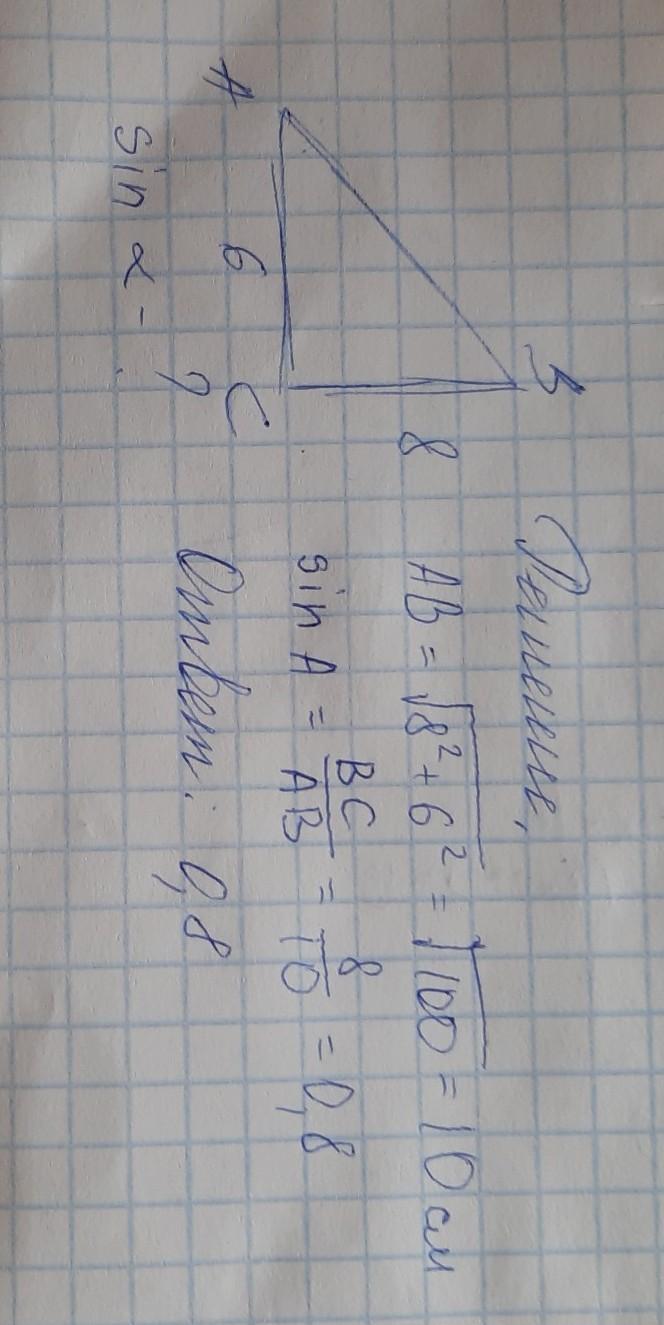 B
8
A
6
C
sin α - ?
Решение,
AB = √8² + 6² = √100 = 10 см
sin A = BC/AB = 8/10 = 0,8
Ответ: 0,8